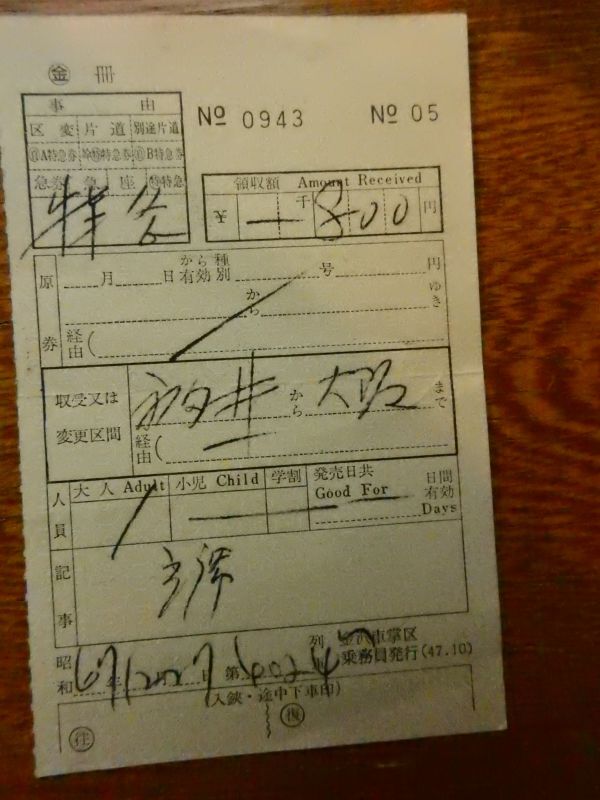 ㊎ 冊
事 由
№ 0943 № 05
区 変 片 道 別途片道
A特急券 特急券 B特急券
急券 急 座 特急
特急
領収額 Amount Received
¥ 一 千 800 円
原券
月 日から有効 種別 号 円
から ゆき
経由(
取受又は変更区間
福井 から 大阪 まで
経由(
人員
大 人 Adult 小児 Child 学割 発売日共 日間有効
Good For Days
記事
立席
昭和 年 月 日 第 列
金沢車掌区
乗務員発行(47.10)
(入鋏・途中下車印)
往 復